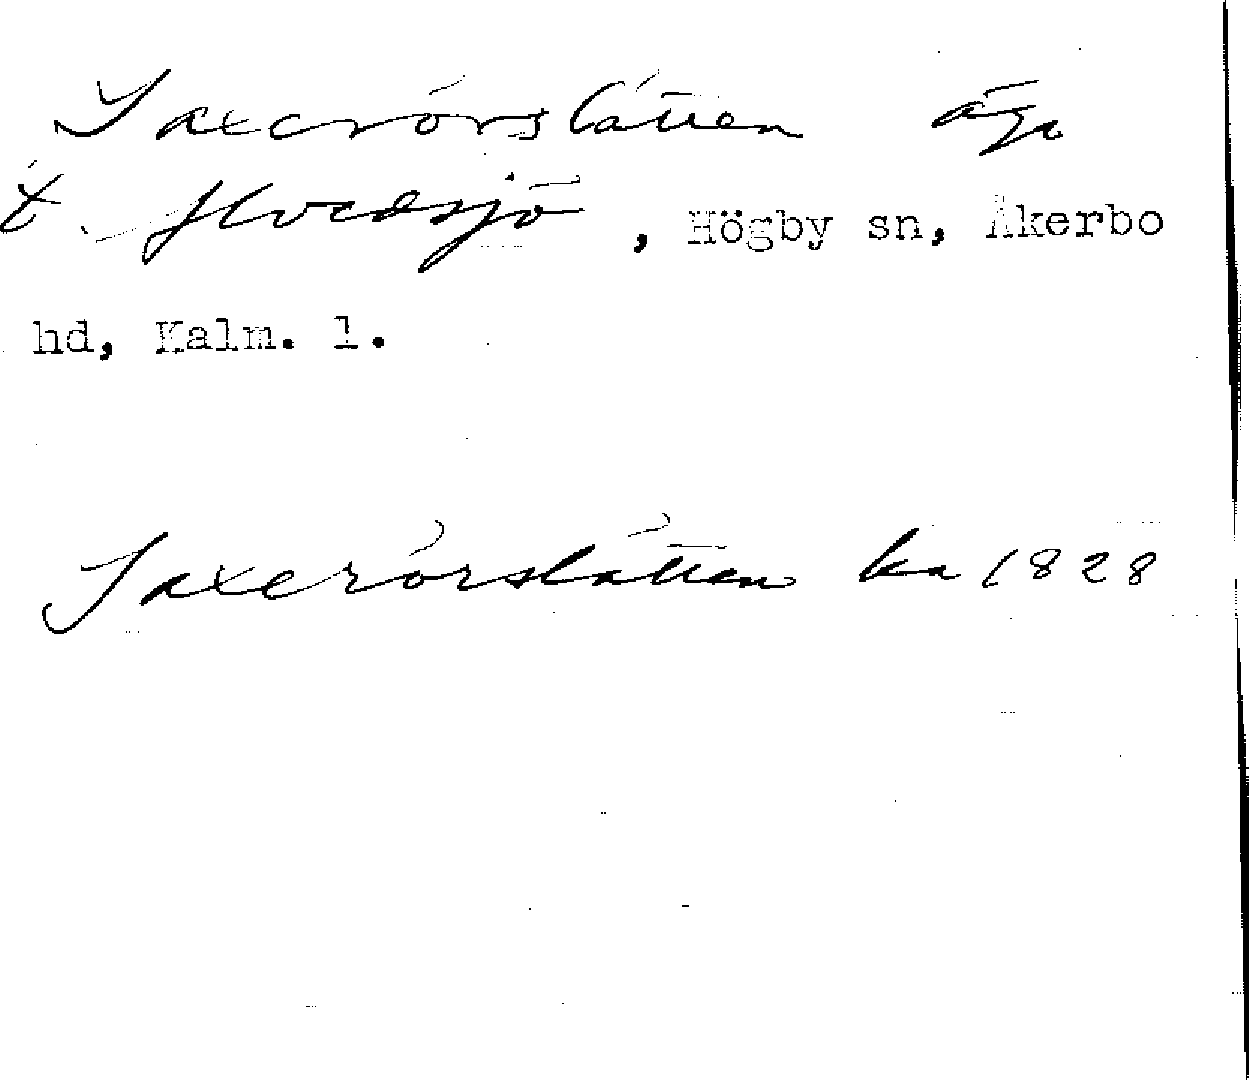 Saxerörslåtten äga
t. Hvedsjö, Högby sn, Åkerbo
hd, Kalm. l.
Saxerörslåtten ka 1828